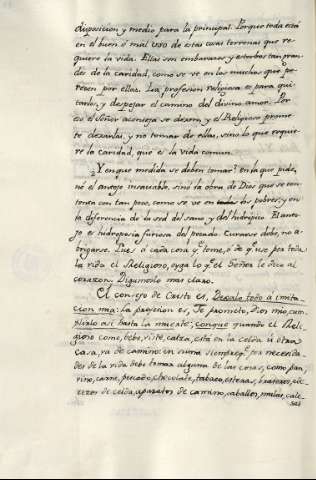 disposicion y medio para la principal. Porque toda está
en el buen ó mal uso de estas cosas terrenas que re-
quiere la vida. Ellas son embarazos y estorbos tan gran-
des de la caridad, como se ve en los muchos que pe-
recen por ellas. La profesion religiosa es para qui-
tarlos, y despejar el camino del divino amor. Por
eso el Señor aconseja se dexen, y el Religioso prome-
te dexarlas, y no tomar de ellas, sino lo que requie-
re la caridad, que es la vida comun.
¿Y en que medida se deben tomar? en la que pide,
nó el antojo insaciable, sino la obra de Dios que se con-
tenta con tan poco, como se ve en los pobres; y en
la diferencia de la sed del sano, y del hidrópico. El anto-
jo es hidropesia furiosa del pecado. Curarse debe, no a-
brigarse. Pues á cada cosa q.e tome, ó de q.e use por toda
la vida el Religioso, oyga lo q.e el Señor le dice al
corazon. Digamoslo mas claro.
El consejo de Cristo es, Dexalo todo á imita-
cion mia: la profesion es, Te prometo, Dios mio, cum-
plirlo asi hasta la muerte; conque quando el Reli-
gioso come, bebe, viste, calza, está en la celda ú otra
casa, va de camino, en suma siempre q.e por necesida-
des de la vida debe tomar alguna de las cosas, como pan,
vino, carne, pescado, chocolate, tabaco, esteras, braseros,
de celda, aparatos de camino, caballos, mulas, cale-
sas